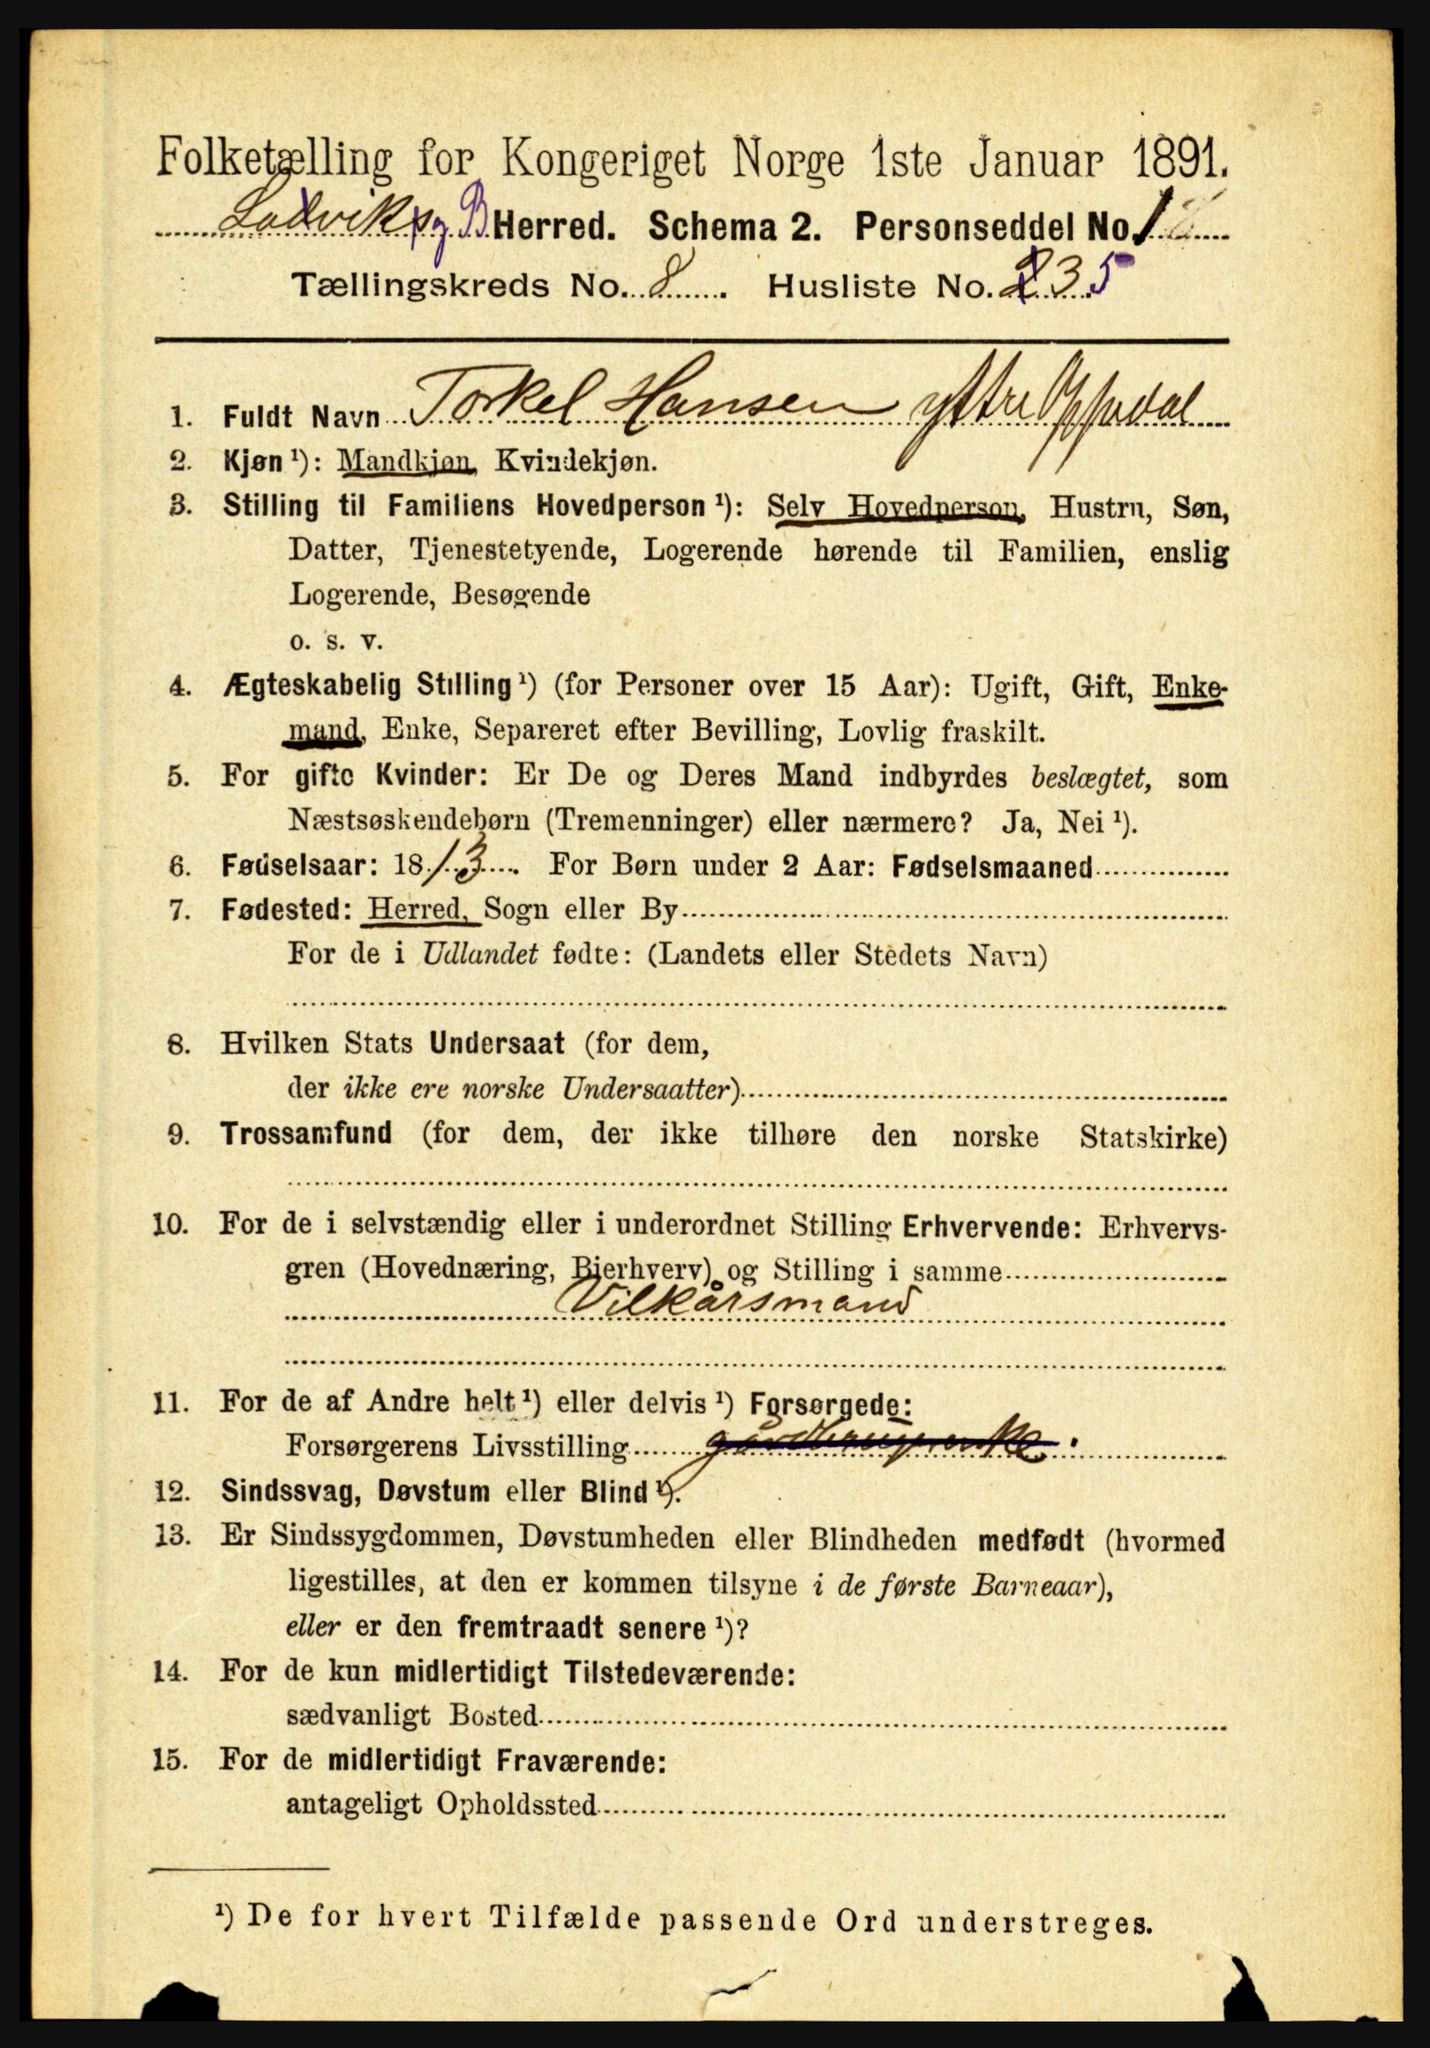 Folketælling for Kongeriget Norge 1ste Januar 1891.
Ladvik og B Herred. Schema 2. Personseddel No. 1
Tællingskreds No. 8. Husliste No. 235
1. Fuldt Navn Torkel Hansen ytre Oppedal
2. Kjøn ¹): Mandkjøn, Kvindekjøn.
3. Stilling til Familiens Hovedperson ¹): Selv Hovedperson, Hustru, Søn,
Datter, Tjenestetyende, Logerende hørende til Familien, enslig
Logerende, Besøgende
o. s. v.
4. Ægteskabelig Stilling ¹) (for Personer over 15 Aar): Ugift, Gift, Enke-
mand, Enke, Separeret efter Bevilling, Lovlig fraskilt.
5. For gifte Kvinder: Er De og Deres Mand indbyrdes beslægtet, som
Næstsøskendebørn (Tremenninger) eller nærmere? Ja, Nei ¹).
6. Fødselsaar: 1813. For Børn under 2 Aar: Fødselsmaaned
7. Fødested: Herred, Sogn eller By
For de i Udlandet fødte: (Landets eller Stedets Navn)
8. Hvilken Stats Undersaat (for dem,
der ikke ere norske Undersaatter)
9. Trossamfund (for dem, der ikke tilhøre den norske Statskirke)
10. For de i selvstændig eller i underordnet Stilling Erhvervende: Erhvervs-
gren (Hovednæring, Bierhverv) og Stilling i samme
Vilkårsmand
11. For de af Andre helt ¹) eller delvis ¹) Forsørgede:
Forsørgerens Livsstilling
12. Sindssvag, Døvstum eller Blind ¹).
13. Er Sindssygdommen, Døvstumheden eller Blindheden medfødt (hvormed
ligestilles, at den er kommen tilsyne i de første Barneaar),
eller er den fremtraadt senere ¹)?
14. For de kun midlertidigt Tilstedeværende:
sædvanligt Bosted
15. For de midlertidigt Fraværende:
antageligt Opholdssted
¹) De for hvert Tilfælde passende Ord understreges.